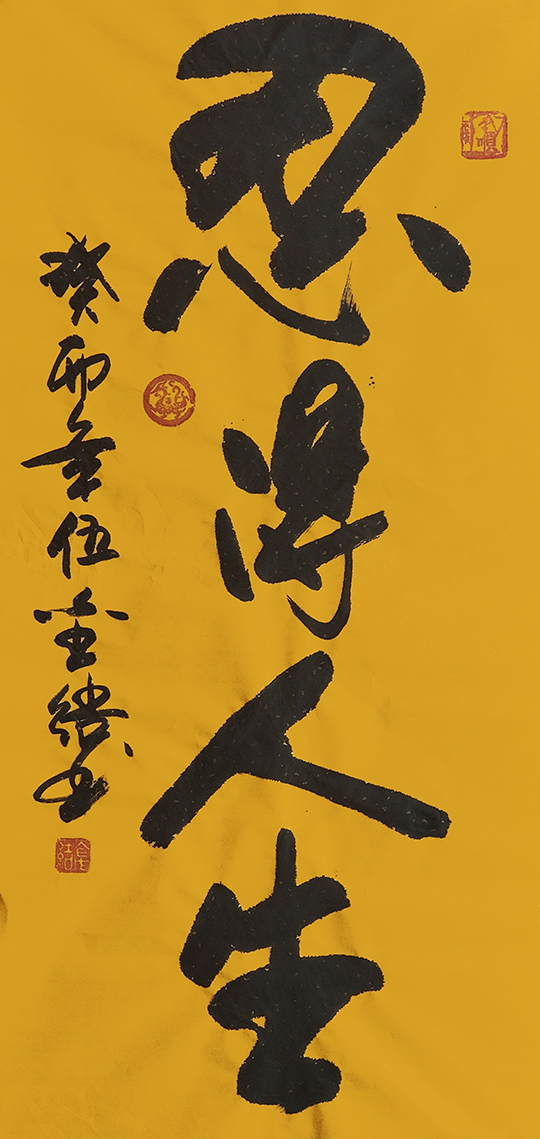 忍得人生
癸卯年伍金书